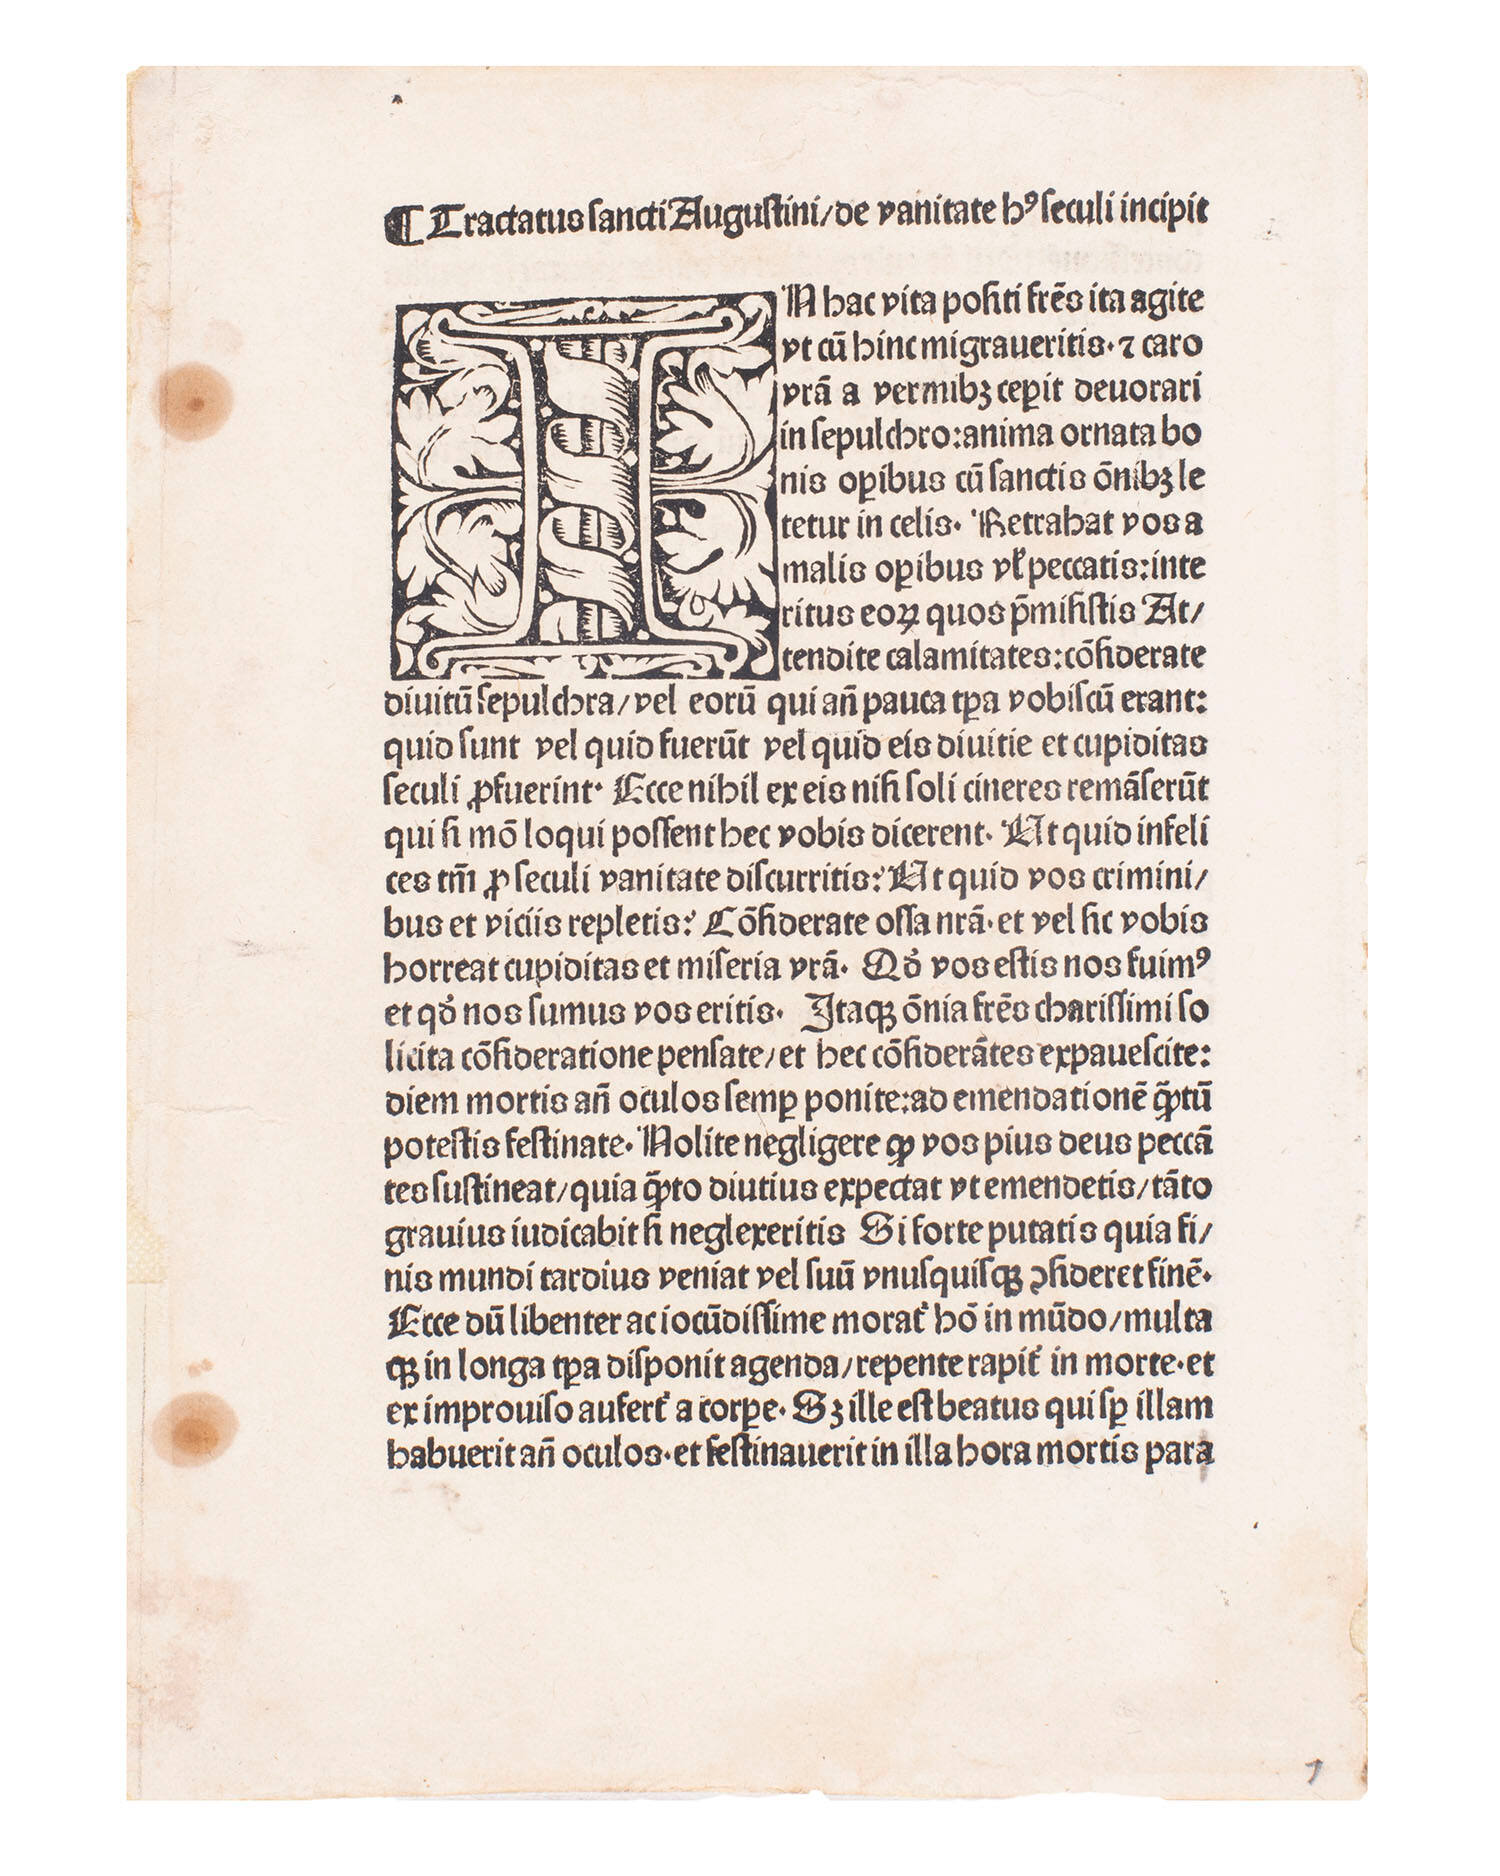 ¶ Tractatus sancti Augustini/de vanitate hꝰ seculi incipit
IN hac vita positi frēs ita agite
vt cū hinc migraueritis· ⁊ caro
vrā a vermibꝫ ceꝑit deuorari
in sepulchro:anima ornata bo
nis oꝑibus cū sanctis ōnibꝫ le
tetur in celis· Retrahat vos a
malis oꝑibus vl̓ peccatis:inte
ritus eoꝝ quos p̄misistis At/
tendite calamitates:cōsiderate
diuitū sepulchra/vel eorū qui an̄ pauca tꝑa vobiscū erant:
quid sunt vel quid fuerūt vel quid eis diuitie et cupiditas
seculi ꝓfuerint· Ecce nihil ex eis nisi soli cineres remāserūt
qui si mō loqui possent hec vobis dicerent· Ut quid infeli
ces tm̄ ꝓ seculi vanitate discurritis? Ut quid vos crimini/
bus et viciis repletis? Cōsiderate ossa nrā· et vel sic vobis
horreat cupiditas et miseria vrā· Qd̓ vos estis nos fuimꝰ
et qd̓ nos sumus vos eritis· Itaqꝫ ōnia frēs charissimi so
licita cōsideratione pensate/et hec cōsiderātes expauescite:
diem mortis an̄ oculos semꝑ ponite:ad emendationē q̄ꝫtū
potestis festinate· Nolite negligere ꝙ vos pius deus peccā
tes sustineat/quia q̄ꝫto diutius expectat vt emendetis/tāto
grauius iudicabit si neglexeritis Si forte putatis quia fi/
nis mundi tardius veniat vel suū vnusquisqꝫ ꝯsideret finē·
Ecce dū libenter ac iocūdissime morat᷑ hō in mūdo/multa
qꝫ in longa tꝑa disponit agenda/repente rapit᷑ in morte·et
ex improuiso aufert᷑ a corꝑe· Sꝫ ille est beatus qui sꝑ illam
habuerit an̄ oculos·et festinauerit in illa hora mortis para
7